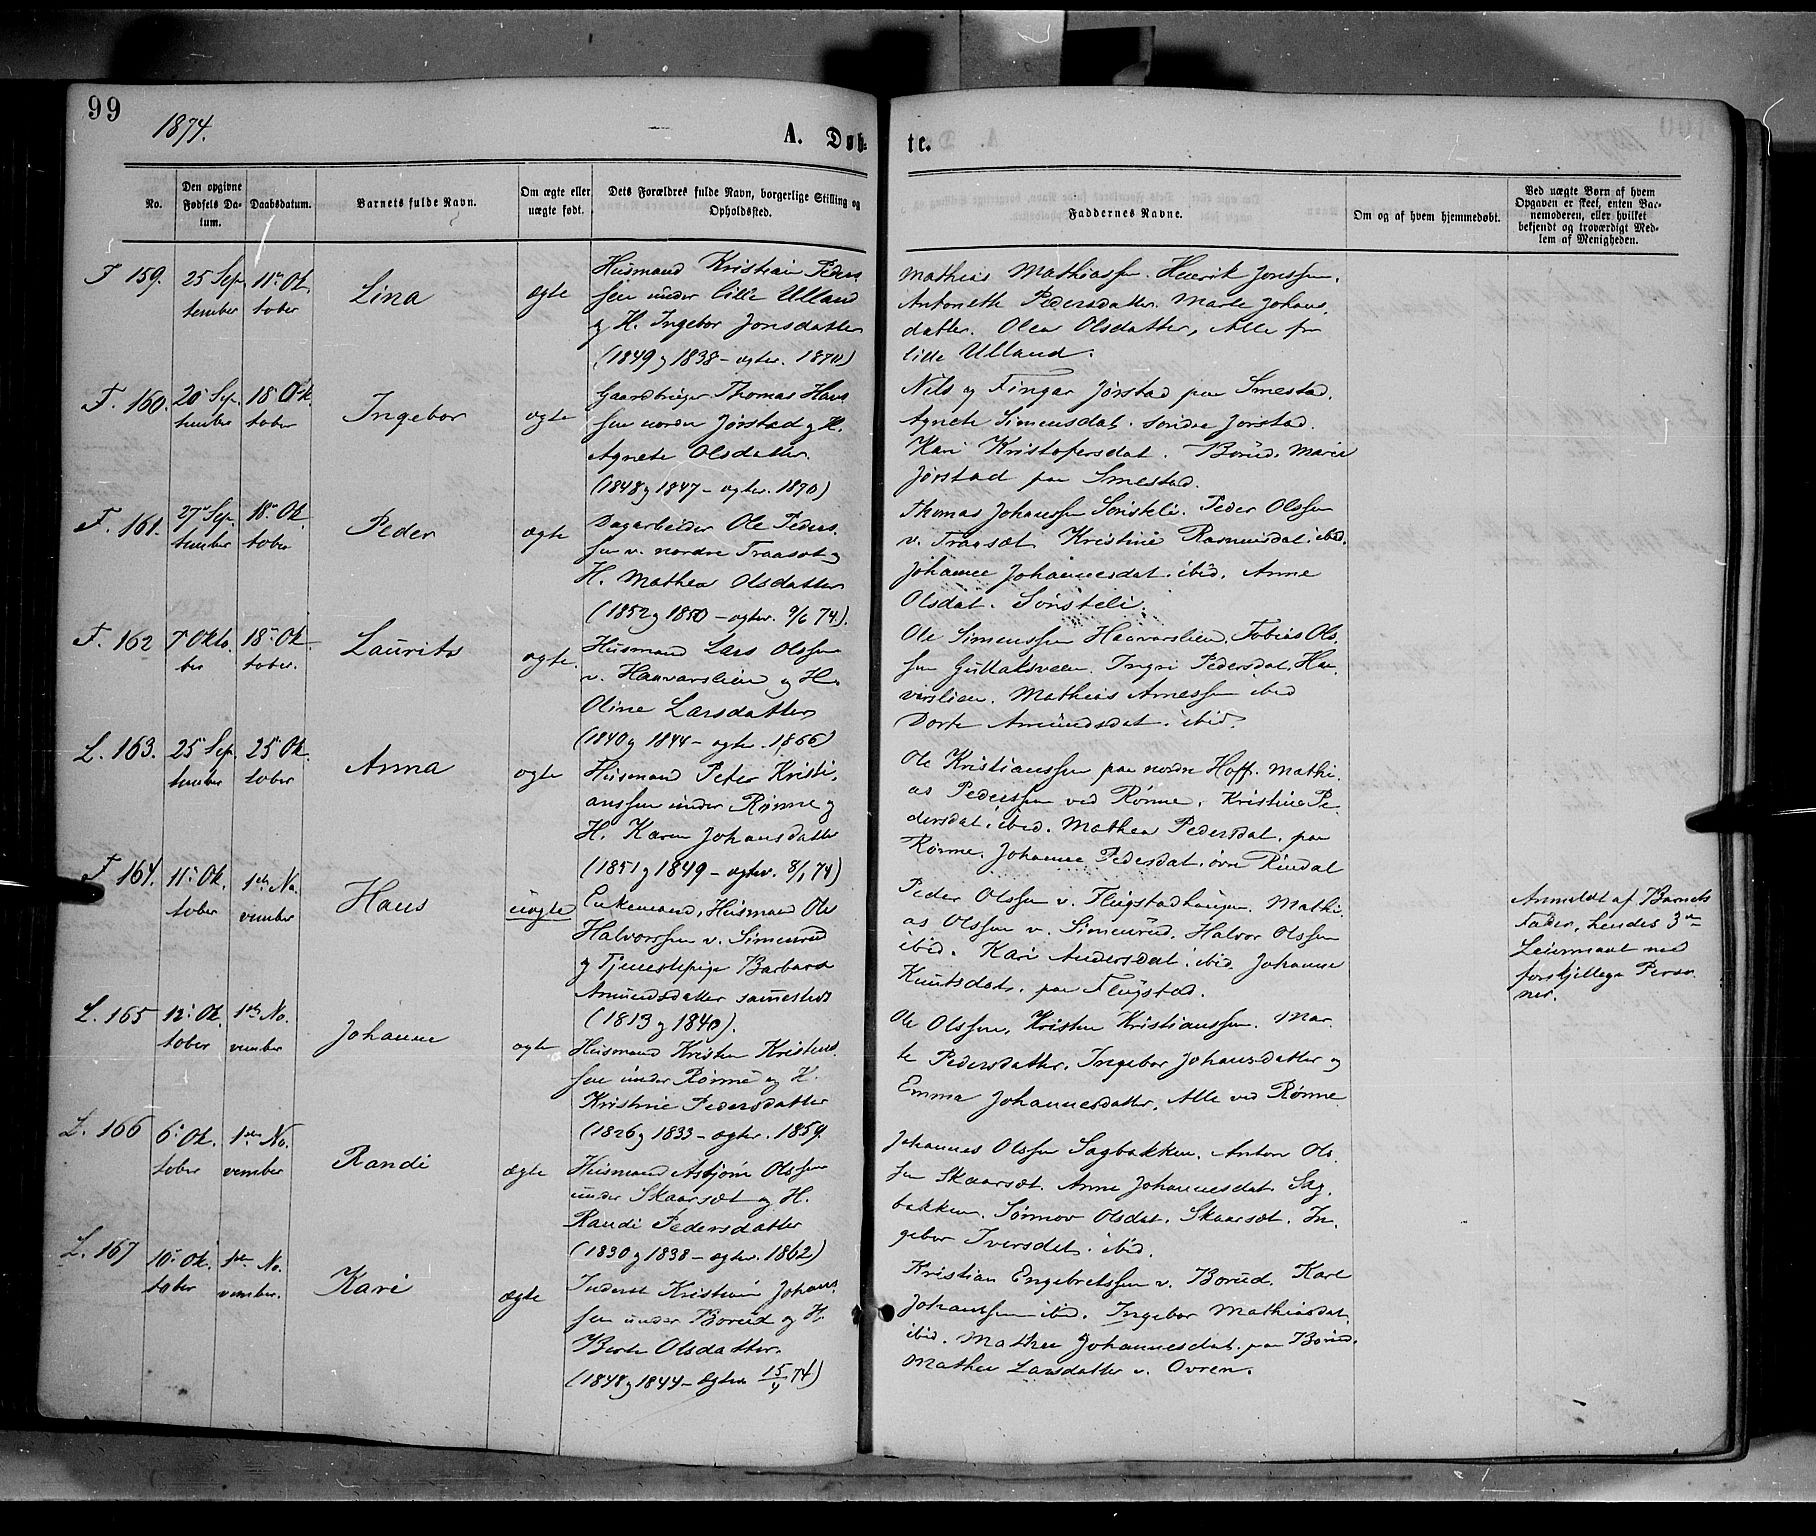 99
1874.
A. Døb-
te.
No.
Den opgivne
Fødsels Da-
tum.
Daabsdatum.
Barnets fulde Navn.
Om ægte eller
uægte født.
Dets Forældres fulde Navn, borgerlige Stilling og
Opholdssted.
Faddernes Navne.
Om og af hvem hjemmedøbt.
Ved uægte Børn af hvem
Opgaven er skeet, enten Bar-
nemoderen, eller hvilket
bekjendt og troværdigt Med-
lem af Menigheden.
F 159.
25 Sep
tember
11 Ok
tober
Lina
ægte
Husmand Kristian Peder
sen under lille Ulland
og H. Ingebor Jonsdatter
(1849 og 1838 - ægtev. 1870)
Mathias Mathiassen. Henrik Jonssen.
Antonette Pedersdatter. Marte Johans
datter. Olea Olsdatter, Alle fra
lille Ulland.
F. 160.
20 Sep
tember
18 Ok
tober
Ingebor
ægte
Gaardbruger Thomas Hans
sen nordre Jørstad og H.
Agnete Olsdatter.
(1848 og 1847 - ægtev. 1870)
Nils og Fingar Jørstad paa Smestad.
Agnete Simensdat. søndre Jørstad.
Kari Kristofersdat. Borud. Marie
Jørstad paa Smestad.
F. 161.
27 Sep
tember
18 Ok
tober
Peder
ægte
Dagarbeider Ole Peders
sen v. nordre Traasæt og
H. Mathea Olsdatter
(1852 og 1850 - ægtev. 9/6 74).
Thomas Johanssen Sønsteli. Peder Olssen
v. Traasæt. Kristine Rasmusdat. ibid.
Johanne Johannesdat. ibid. Anne
Olsdat. Sønsteli.
F. 162
7 Okto
ber
18 Ok
tober.
Laurits
ægte.
Husmand Lars Olssen
v. Haavarslien og H.
Oline Larsdatter
(1840 og 1844 - ægtev. 1866)
Ole Simenssen Haavarslien. Tobias Ols
sen Guttaksveen. Ingri Pedersdat. Haa
varslien. Mathias Arnessen ibid
Dorte Amundsdat. ibid.
L. 163.
25 Sep
tember
25 Ok
tober
Anna
ægte
Husmand Peter Kristi
anssen under Rønne og
H. Karen Johansdatter
(1851 og 1849 - ægtev. 8/1 74)
Ole Kristianssen paa nordre Hoff. Mathi
as Pederssen ved Rønne. Kristine Pe
dersdat. ibid. Mathea Pedersdat. paa
Rønne. Johanne Pedersdat. øvre Rindal
F 164.
11 Ok
tober
1ste No
vember
Hans
uægte
Enkemand, Husmand Ole
Halvorssen v. Simenrud
og Tjenestepige Barbara
Amundsdatter samesteds
(1813 og 1840).
Peder Olssen v. Flugstadhaugen. Mathi
as Olssen v. Simenrud. Halvor Olssen
ibid. Kari Andersdat. ibid. Johanne
Knutsdat. paa Flugstad.
Anmeldt af Barnets
Fader, hendes 3die
Leiermaal med
forskjellige Perso
ner.
L. 165
12 Ok
tober
1ste No.
vember
Johanne
ægte
Husmand Kristen Kristens
sen under Rønne og H.
Kristine Pedersdatter
(1826 og 1833 - ægtev. 1859.
Ole Olssen, Kristen Kristianssen. Mar
te Pedersdatter. Ingebor Johansdatter og
Emma Johannesdatter. Alle ved Rønne
L. 166
6 Ok.
tober
1ste No.
vember
Randi
ægte
Husmand Asbjørn Olssen
under Skaarsæt og H.
Randi Pedersdatter
(1830 og 1838 - ægtev. 1862)
Johannes Olssen Sagbakken. Anton Ols
sen Skaarsæt. Anne Johannesdat. Sag
bakken. Sønnov Olsdat. Skaarsæt. In
gebor Iversdat. ibid.
L. 167
10 Ok.
tober
1ste No.
vember.
Kari
ægte
Inderst Kristian Johans
sen under Borud og H.
Berte Olsdatter.
(1848 og 1844 - ægtev. 15/4 74)
Kristian Engebretssen v. Borud. Karl
Johanssen ibid. Ingebor Mathiasdat.
ibid. Mathea Johannesdat. paa Borud.
Mathea Larsdatter v. Ovren.